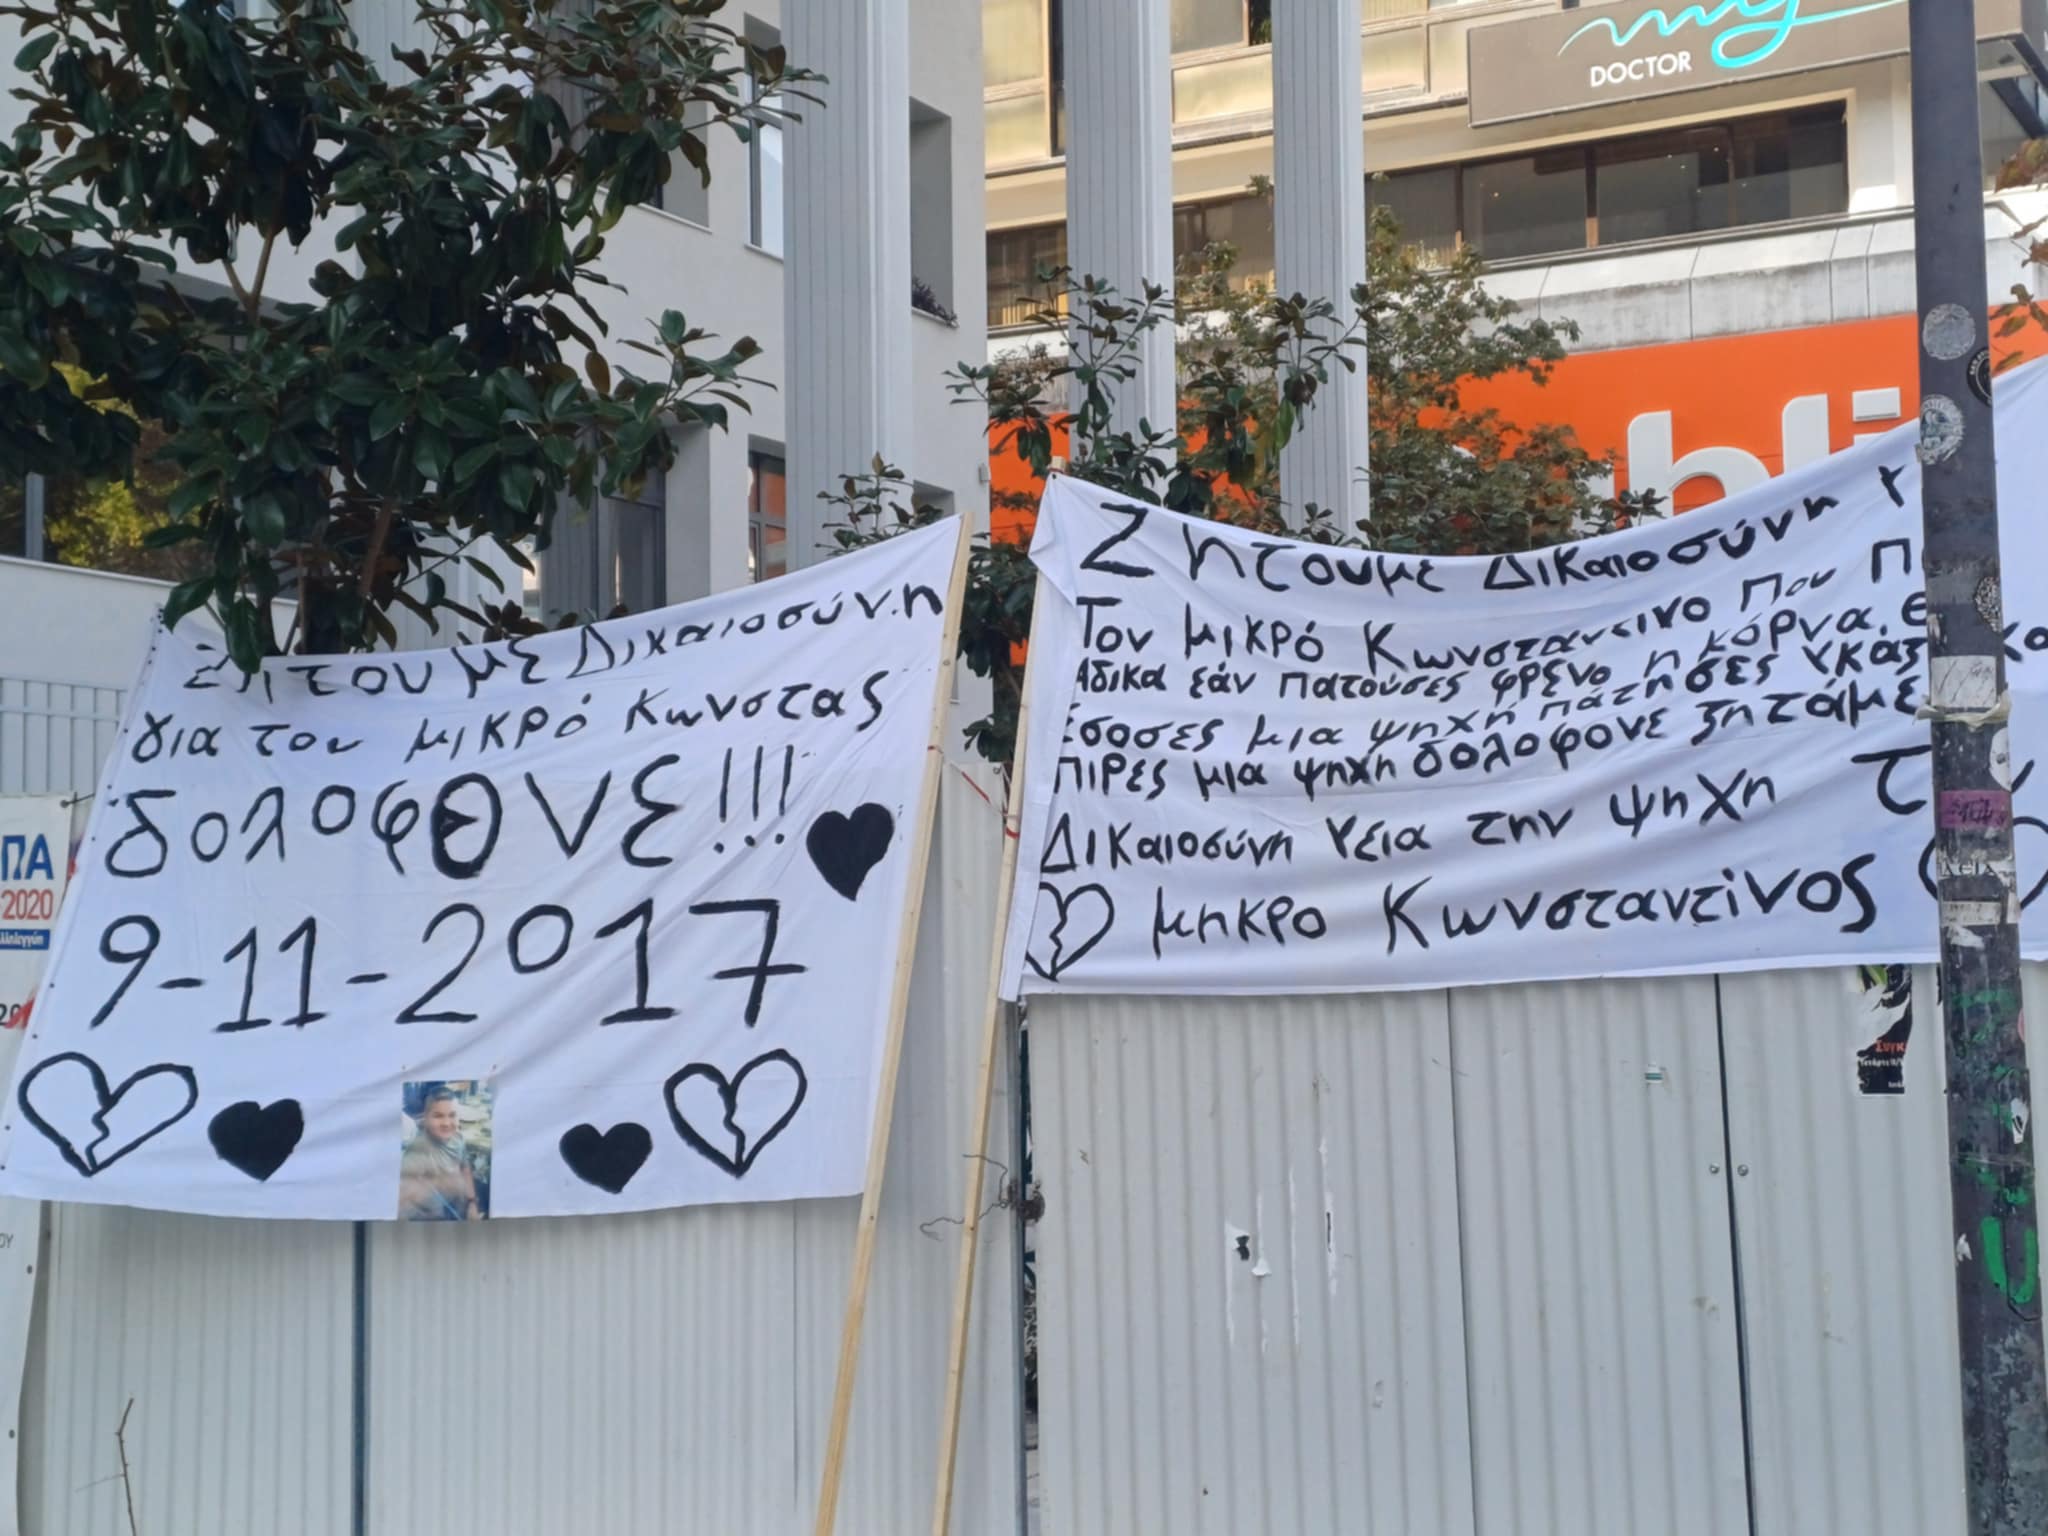 my
DOCTOR
Ζητουμε Δικαιοσύνη
για τον μικρό Κωνστας
δολοφΘνε!!!
9-11-2017
Ζητουμε Δικαιοσύνη
Τον μικρό Κωνσταντινο που
Αδικα εάν πατούσες φρενο η κόρνα. Θ
Εσοσες μια ψηχή πάτησες γκάζ
Πιρες μια ψηχη δολοφονε ζητάμε
Δικαιοσύνη γεια την ψηχη
μηκρο Κωνσταντίνος
ΠΑ
2020